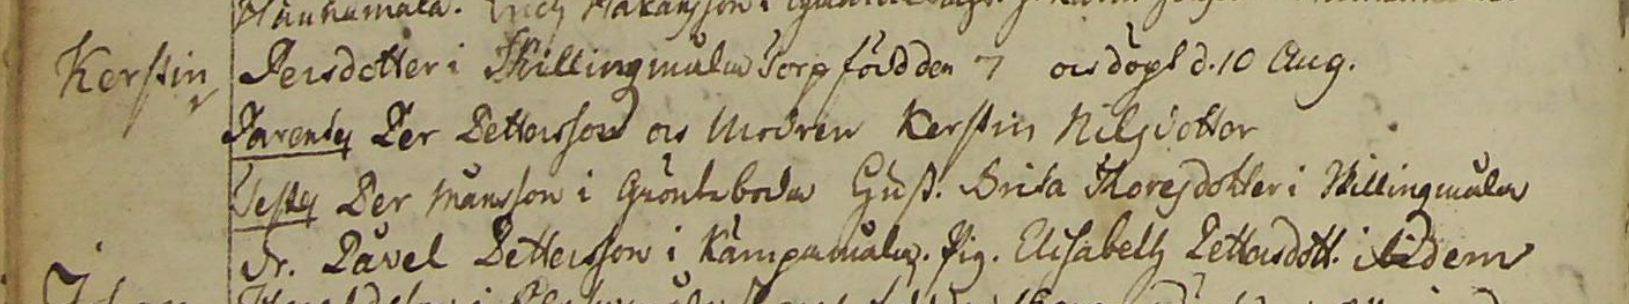 Hunnamåla. Håkansson i
Kerstin Persdotter i Skillingmåla Torp född den 7 oc döpt d. 10 Aug.
Parentes Per Pettersson oc Modren Kerstin Nilsdotter
Testes Per Månsson i Grönteboda Hust. Brita Thoresdotter i Skillingmåla
Dr. Påvel Pettersson i Kämpamåla. Pig. Elisabeth Pettersdott. ibidem
Johan